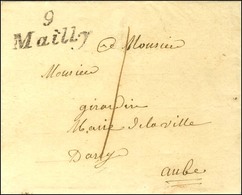 9
Mailly
a Monsieur
Monsieur
girardin
Maire de la ville
Darcy
aube